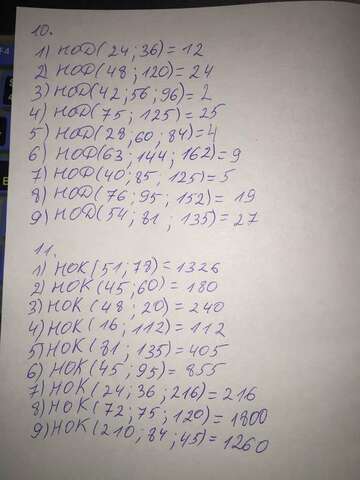 10.
1) НОД(24;36)=12
2) НОД(48;120)=24
3) НОД(42;56;96)=2
4) НОД(75;125)=25
5) НОД(28,60,84)=4
6) НОД(63;144;162)=9
7) НОД(40;85,125)=5
8) НОД(76;95;152)= 19
9) НОД(54;81;135)=27
11.
1) НОК(51;78)=1326
2) НОК(45;60)=180
3) НОК(48;20)=240
4) НОК(16;112)=112
5) НОК(81;135)=405
6) НОК(45;95)=855
7) НОК(24;36;216)=216
8) НОК(72;75;120)=1800
9) НОК(210;84;45)=1260